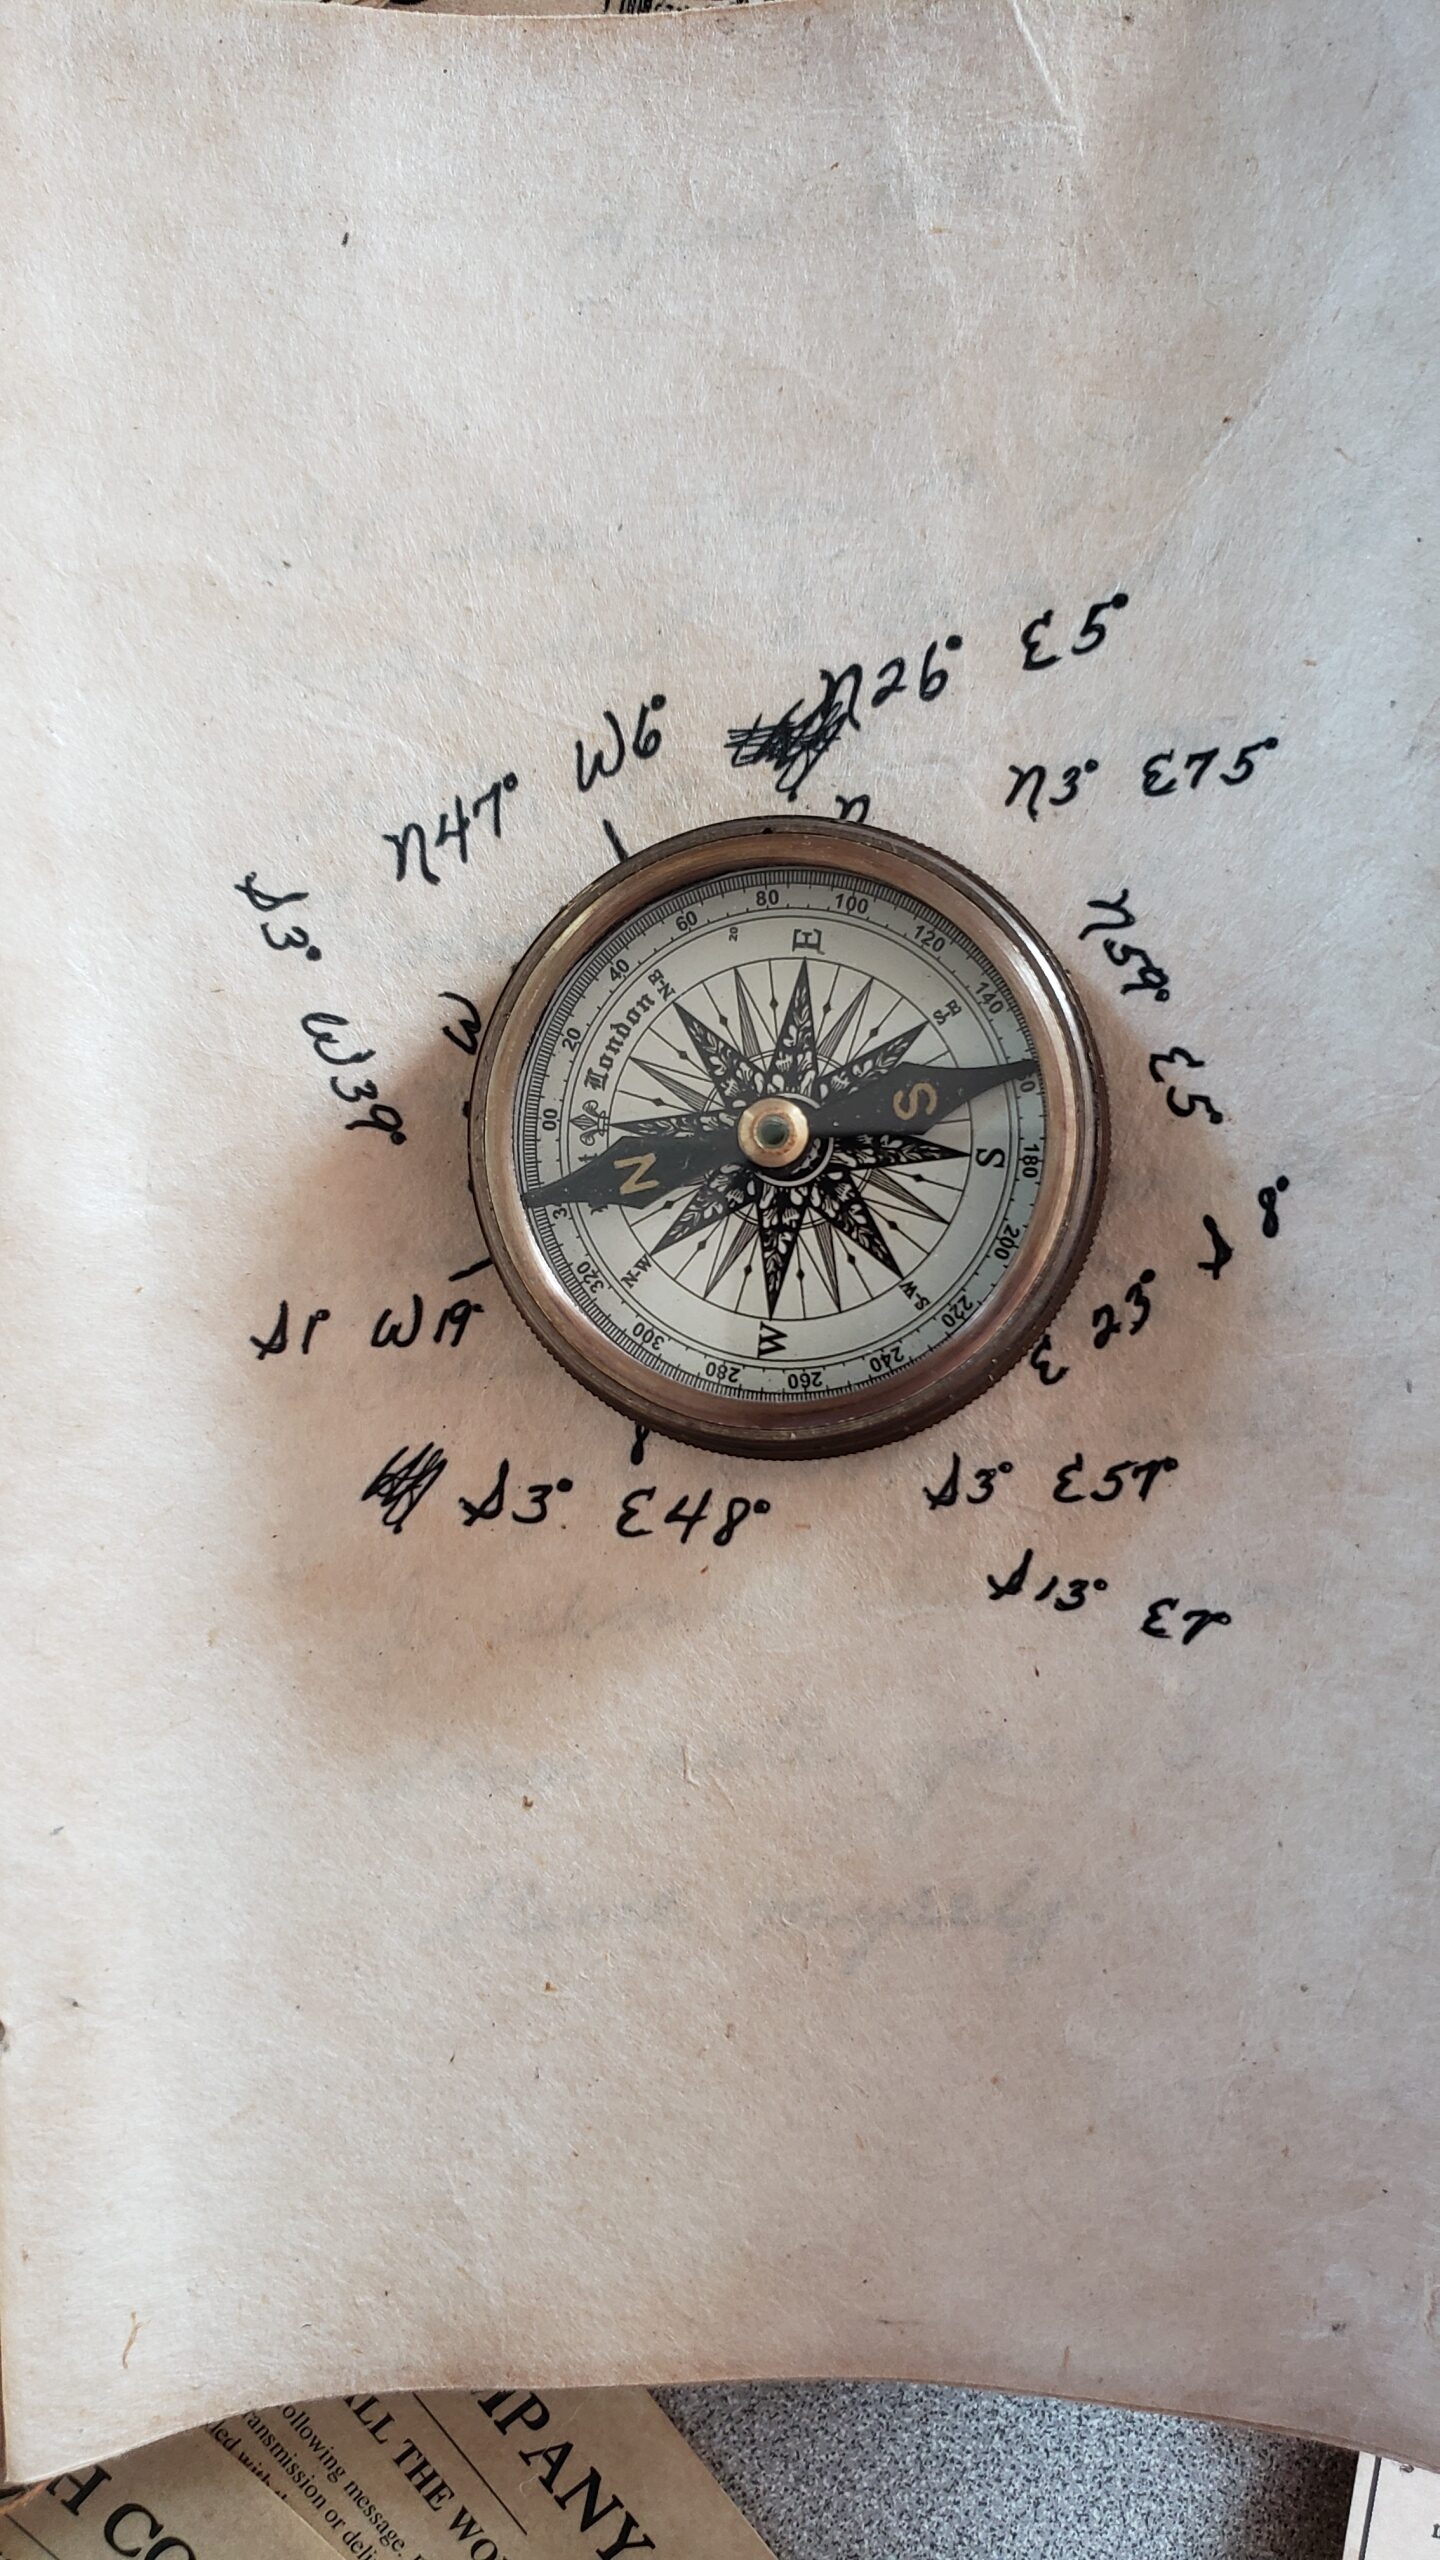 N26° E5°
N47° W6°
N3° E75°
N59° E5°
S3° W39°
S1° W19°
8°
23°
S3° E48°
S3° E57°
S13° E2°
20 40 60 80 100 120 140 180 200 220 240 260 280 300 320
20
E
S-E
S
S-W
W
N-W
N-E
London
N
S
MPANY
ALL THE WO
following message.
ransmission or deli
H CO